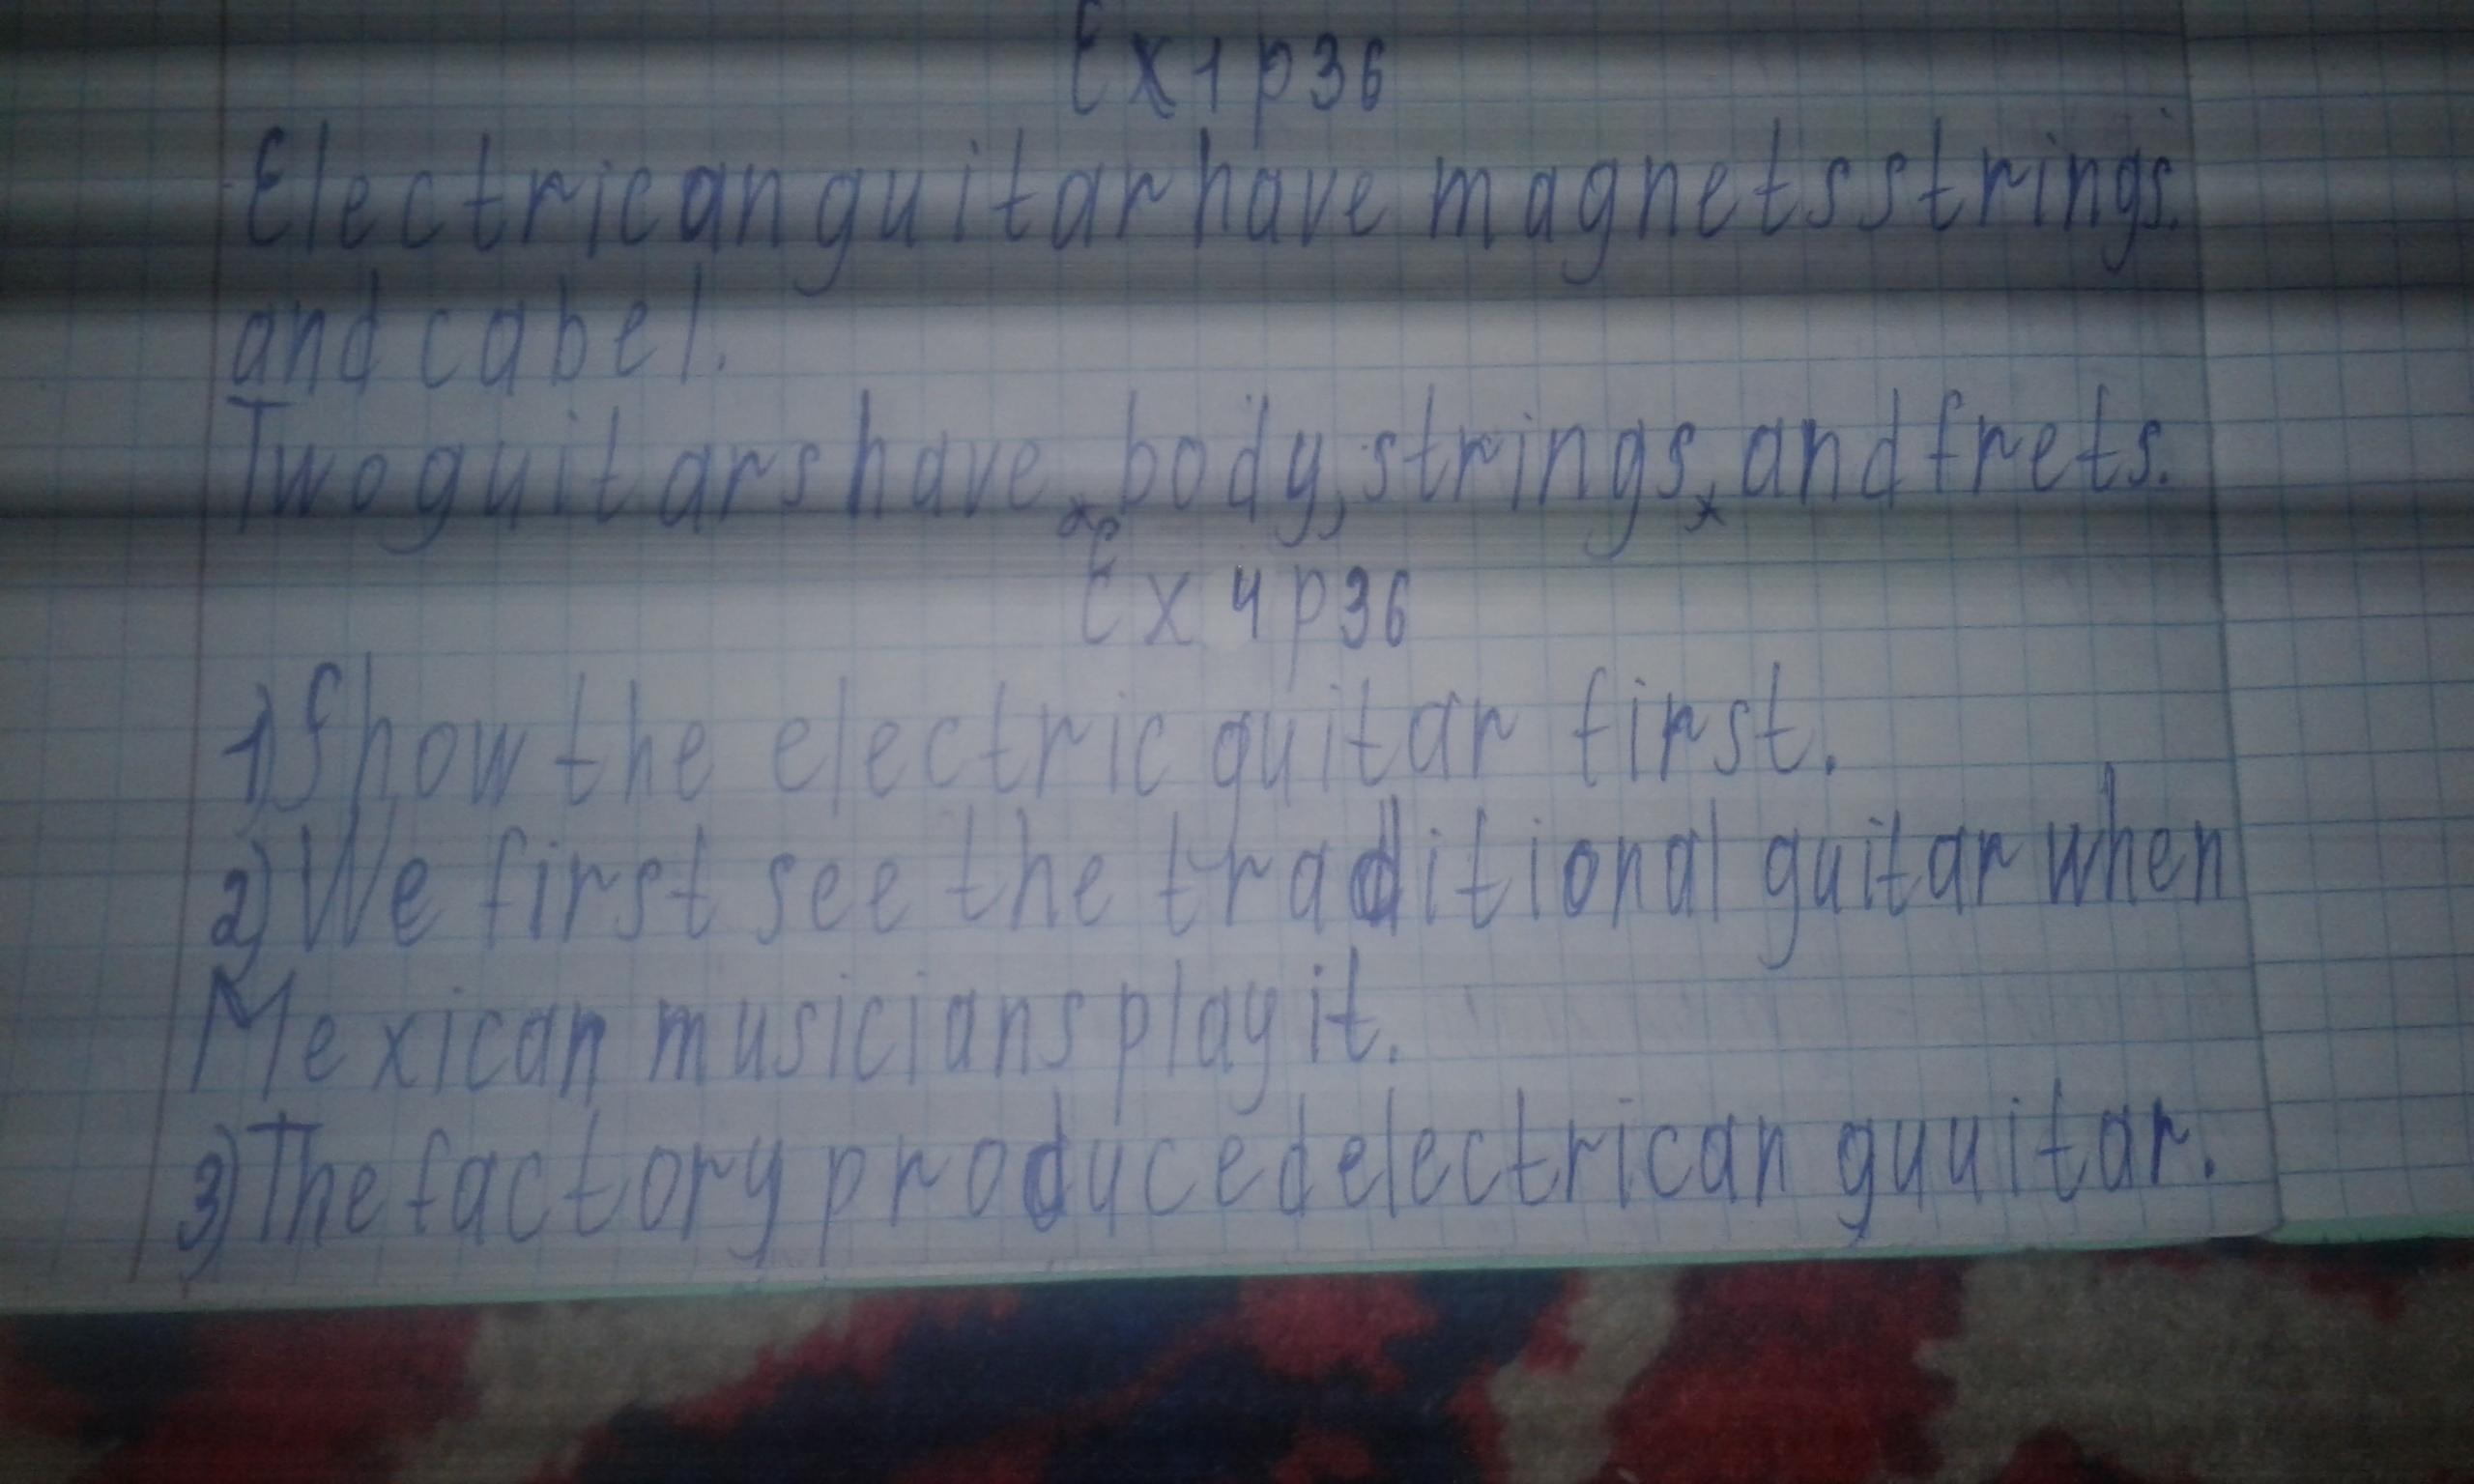 Ex 1 p 36
Electrican guitar have magnets strings.
and cabel.
Two guitars have body, strings, and frets.
Ex 4 p 36
1) Show the electric guitar first.
2) We first see the traditional guitar when
Mexican musicians play it.
3) The factory produced electrican guuitar.